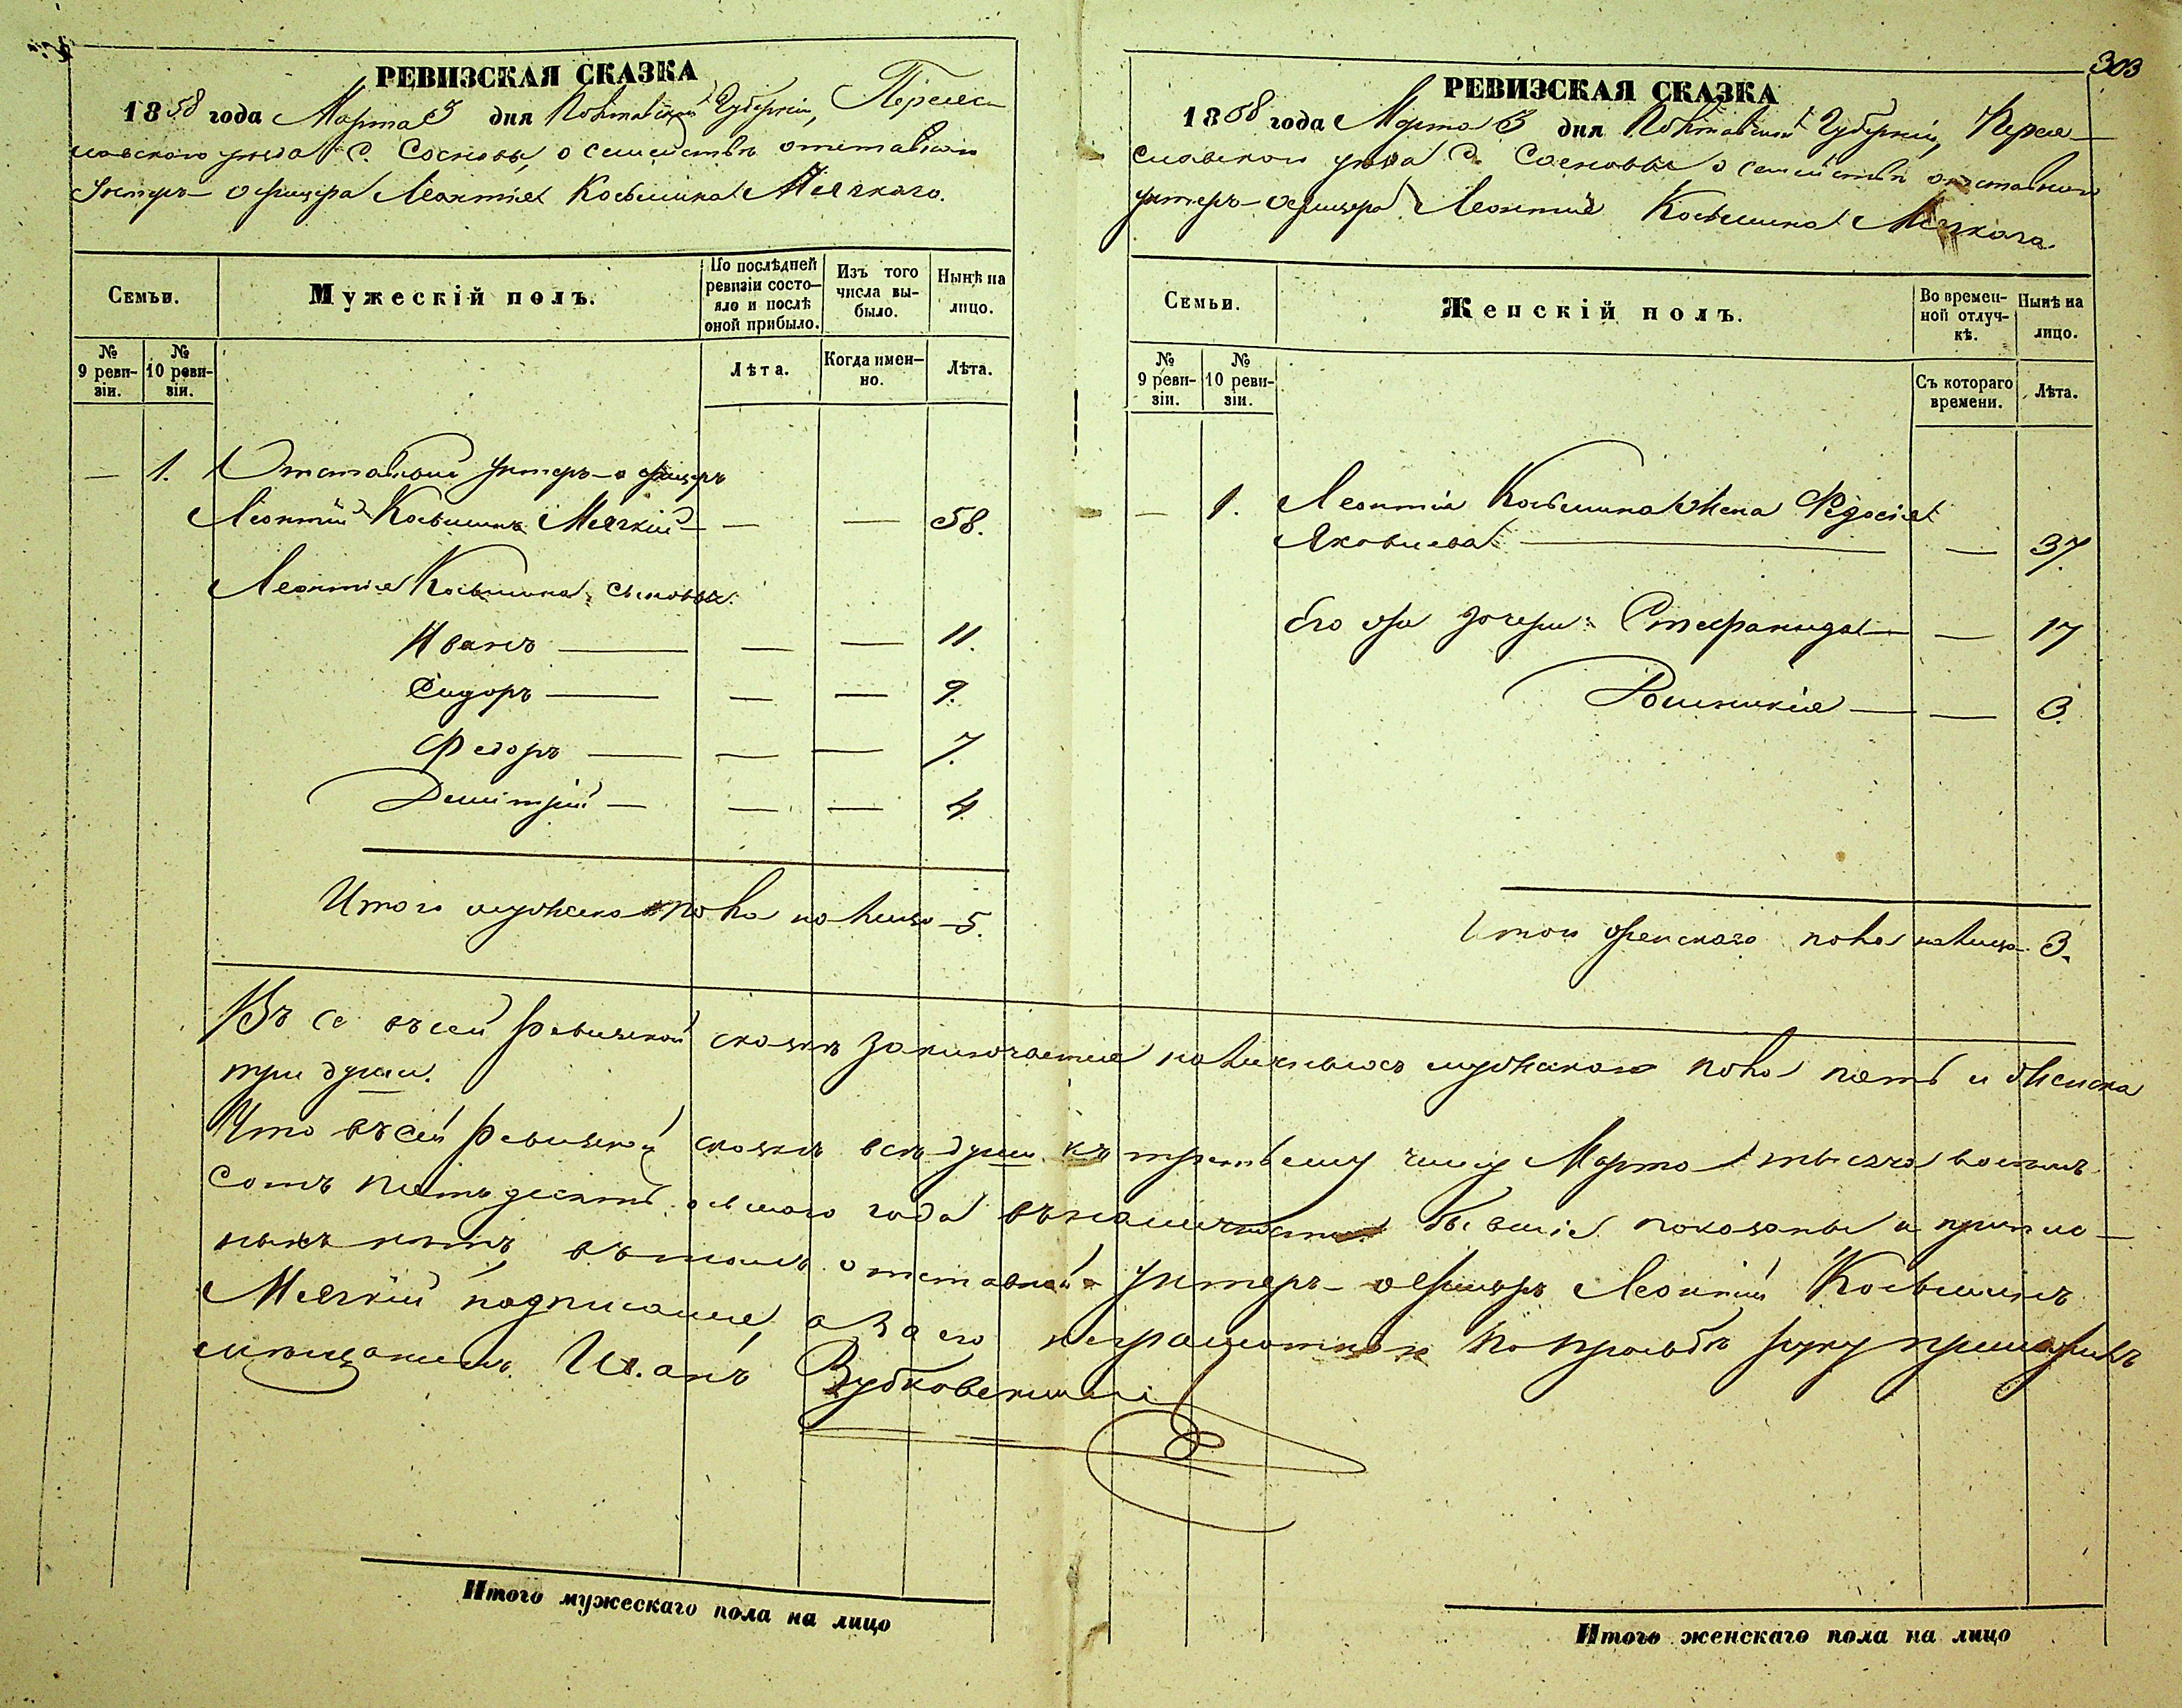 303
РЕВИЗСКАЯ СКАЗКА
1858 года Марта 3 дня Полтавской Губерніи, Переяс-
лавского уезда С. Сосновы, о семействѣ отставнаго
Унтеръ-офицера Леонтія Косьмина Мягкаго.
Семьи.
Мужескій полъ.
По послѣдней ревизіи состо-яло и послѣ оной прибыло.
Изъ того числа вы-было.
Нынѣ на лицо.
№ 9 реви-зіи.
№ 10 реви-зіи.
Лѣта.
Когда имен-но.
Лѣта.
— 1. Отставный унтеръ-офицеръ
Леонтій Косьминъ Мягкій — — — 58.
Леонтія Косьмина сыновья:
Иванъ — — — 11.
Сидоръ — — — 9.
Федоръ — — — 7.
Димитрій — — — 4
Итого мужска пола на лицо 5.
РЕВИЗСКАЯ СКАЗКА
1858 года Марта 3 дня Полтавской Губерніи, Перея-
славского уезда С. Сосновы о семействѣ отставнаго
унтеръ-офицера Леонтія Косьмина Мягкага.
Семьи.
Женскій полъ.
Во времен-ной отлуч-кѣ.
Нынѣ на лицо.
№ 9 реви-зіи.
№ 10 реви-зіи.
Съ котораго времени.
Лѣта.
— 1. Леонтія Косьмина жена Федосія
Яковлева — — 37.
Его же дочери: Стефанида — — 17
— — 3.
Итого женскаго пола на лицо 3.
сей ревизской сказкѣ заключается наличныхъ мужскаго пола пять и женска
три души.
Что въ сей ревизской сказкѣ всѣ души къ третьему числу Марта тысяча восемь
сотъ пятьдесять осьмаго года въ наличности бывшіе показаны и прописо-
ныхъ нѣтъ, въ томъ отставной унтеръ-офицеръ Леонтій Косьминъ
Мягкій подписался, а за его неграмотного по просьбѣ руку
мѣщанинъ Иванъ
Итого мужескаго пола на лицо
Итого женскаго пола на лицо